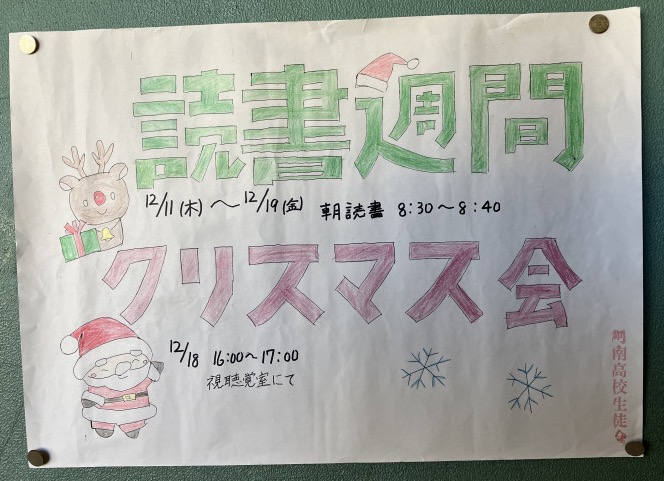 読書週間
12/11(木)～12/19(金) 朝読書 8:30～8:40
クリスマス会
12/18 16:00～17:00
視聴覚室にて
南高校生徒会